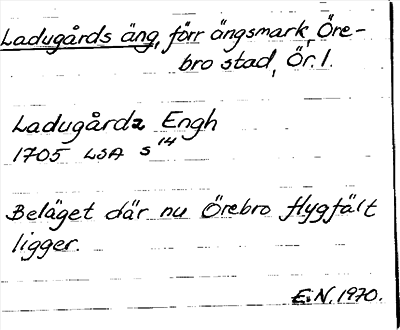 Ladugårds äng, förr ängsmark, Öre-
bro stad, Ör. l.
Ladugårdz Engh
1705 LSA S 14
Beläget där nu Örebro flygfält
ligger.
E.N. 1970.